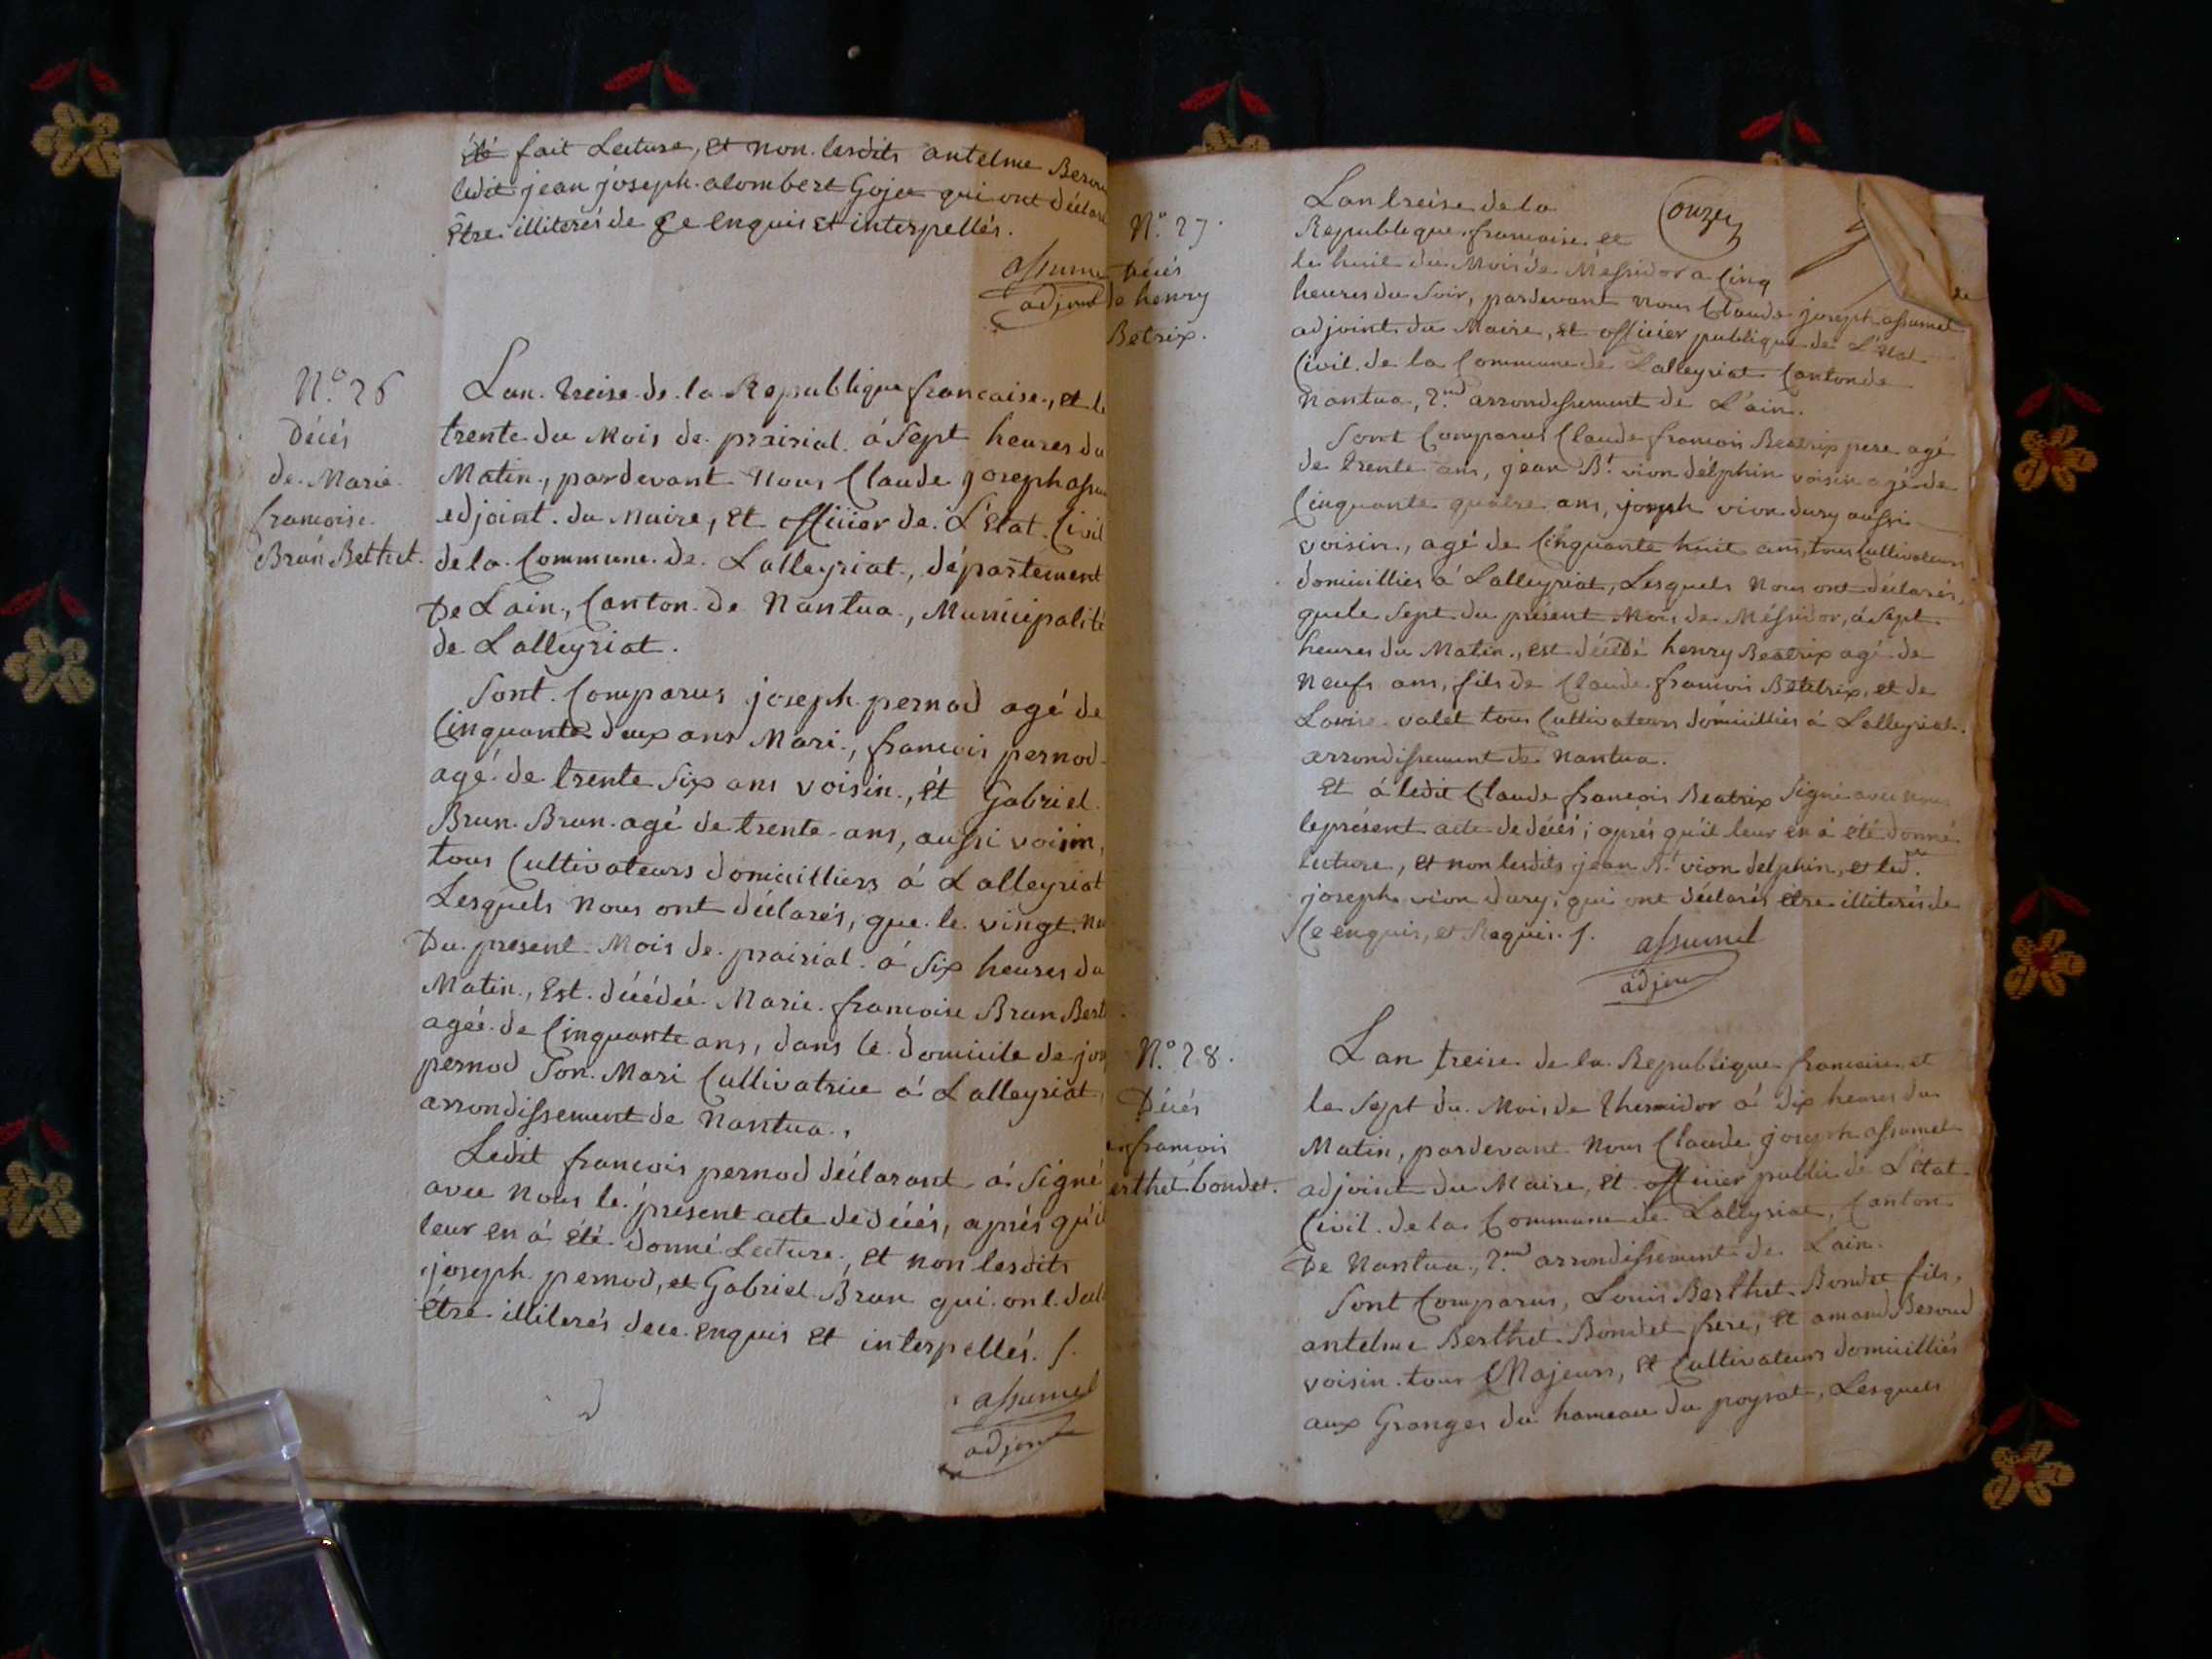 été fait Lecture, et non lesdits antelme
ledit jean joseph alombert Gojet qui ont déclaré
Être illiterés de Ce enquis et interpellés.
assumel
adjoint
N.º 26
Décés
de Marie
francoise
Brun Bethet.
Lan treise de la Republique francaise, et le
trente du Mois de prairial á Sept heures du
Matin, pardevant Nous Claude joseph assu
adjoint du Maire, et officier de L'Etat Civil
de la Commune de Lalleyriat, département
De Lain, Canton de Nantua, Municipalité
de Lalleyriat.
Sont Comparus joseph pernod agé de
Cinquante deux ans Mari, francois pernod
agé de trente Six ans voisin, Et Gabriel
Brun Brun agé de trente ans, aussi voisin,
tous Cultivateurs domicilliers á Lalleyriat
Lesquels Nous ont déclarés, que le vingt
Du présent Mois de prairial á Six heures du
Matin, Est décédée Marie francoise Brun Bert
ageé de Cinquante ans, dans le domicile de
pernod Son Mari Cultivatrice á Lalleyriat,
arrondissement de Nantua.
Ledit francois pernod déclarant á Signé
avec Nous le présent acte de décés, aprés qu'il
leur en á été donné Lecture, et non lesdits
joseph pernod, et Gabriel Brun qui ont
être illiterés de ce enquis Et interpellés. /.
assumel
adjoint
onze
N.º 27.
Décés
de henry
Betrix.
Lan treise de la
Republique francaise et
le huit du Mois de Méssidor a Cinq
heures du Soir, pardevant Nous Claude joseph assumel
adjoint du Maire, et officier publique de L'état
Civil de la Commune de Lalleyriat Canton de
Nantua, 2.nd arrondissement de L'ain.
Sont Comparus Claude francois Beatrix pere agé
de trente ans, jean Bt vion délphin voisin agé de
Cinquante quatre ans, joseph vion dury aussi
voisin, agé de Cinquante huit ans, tous Cultivateurs
domicilliés á Lalleyriat, Lesquels Nous ont déclarés,
que le Sept du présent Mois de Méssidor, á Sept
heures du Matin, est décédé henry Beatrix agé de
Neufs ans, fils de Claude francois Bétetrix, et de
Lovise valet tous Cultivateurs domicilliés á Lalleyriat.
arrondissement de Nantua.
Et á ledit Claude francois Beatrix Signé avec Nous
le présent acte de décés; aprés qu'il leur en á été donné
lecture, et non lesdits jean Bt vion delphin, et led.
joseph vion dury; qui ont déclarés être illiterés de
Ce enquis, et Requis. /.
assumel
adjoint
N.º 28.
Décés
francois
erthet bondet.
Lan treise de la Republique francaise, et
le Sept du Mois de thermidor á dix heures du
Matin, pardevant Nous Claude joseph assumel
adjoint du Maire, Et officier public de L'état
Civil de la Commune de Lalleyriat, Canton
De Nantua, 2.nd arrondissement de Lain.
Sont Comparus, Louis Berthet Bondet fils,
antelme Berthet Bondet frere, Et amand Beroud
voisin tous Majeurs, et Cultivateurs domicilliés
aux Granges du hameau du poysat, Lesquels